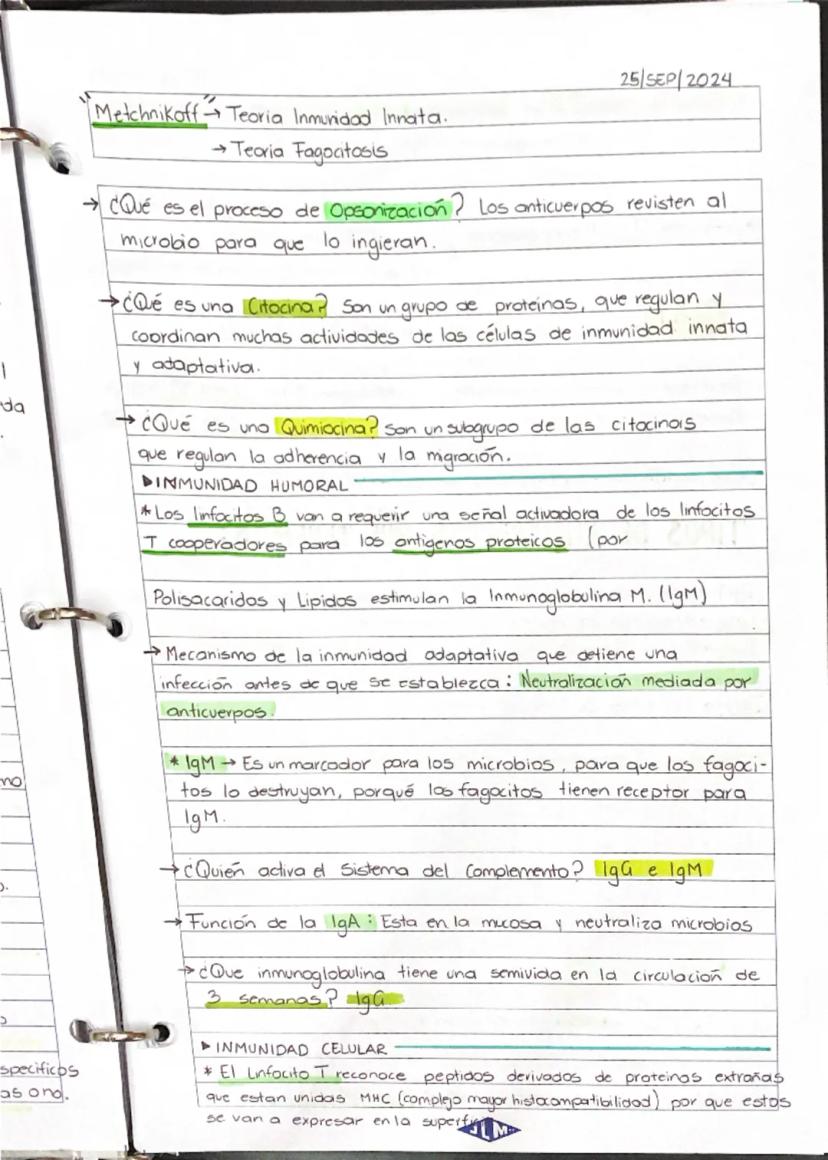 25/SEP/2024
"Metchnikoff" → Teoria Inmunidad Innata.
→ Teoria Fagocitosis
→ ¿Qué es el proceso de Opsonización? Los anticuerpos revisten al
microbio para que lo ingieran.
→ ¿Qué es una Citocina? Son un grupo de proteínas, que regulan y
coordinan muchas actividades de las células de inmunidad innata
y adaptativa.
→ ¿Qué es una Quimiocina? Son un subgrupo de las citocinas
que regulan la adherencia y la migración.
▸INMUNIDAD HUMORAL
* Los linfocitos B van a requerir una señal activadora de los linfocitos
T cooperadores para los antígenos proteicos (por
Polisacaridos y Lipidos estimulan la Inmunoglobulina M. (IgM)
→ Mecanismo de la inmunidad adaptativa que detiene una
infección antes de que se establezca: Neutralización mediada por
anticuerpos.
* IgM → Es un marcador para los microbios, para que los fagoci-
tos lo destruyan, porqué los fagocitos tienen receptor para
IgM.
→ ¿Quién activa el Sistema del Complemento? IgG e IgM
→ Función de la IgA: Esta en la mucosa y neutraliza microbios
→ ¿Que inmunoglobulina tiene una semivida en la circulación de
3 semanas? IgG
▸ INMUNIDAD CELULAR
* El Linfocito T reconoce peptidos derivados de proteinas extrañas
que estan unidas MHC (complejo mayor histocompatibilidad) por que estos
se van a expresar en la superf
JLM
da
no
specificos
as ono.